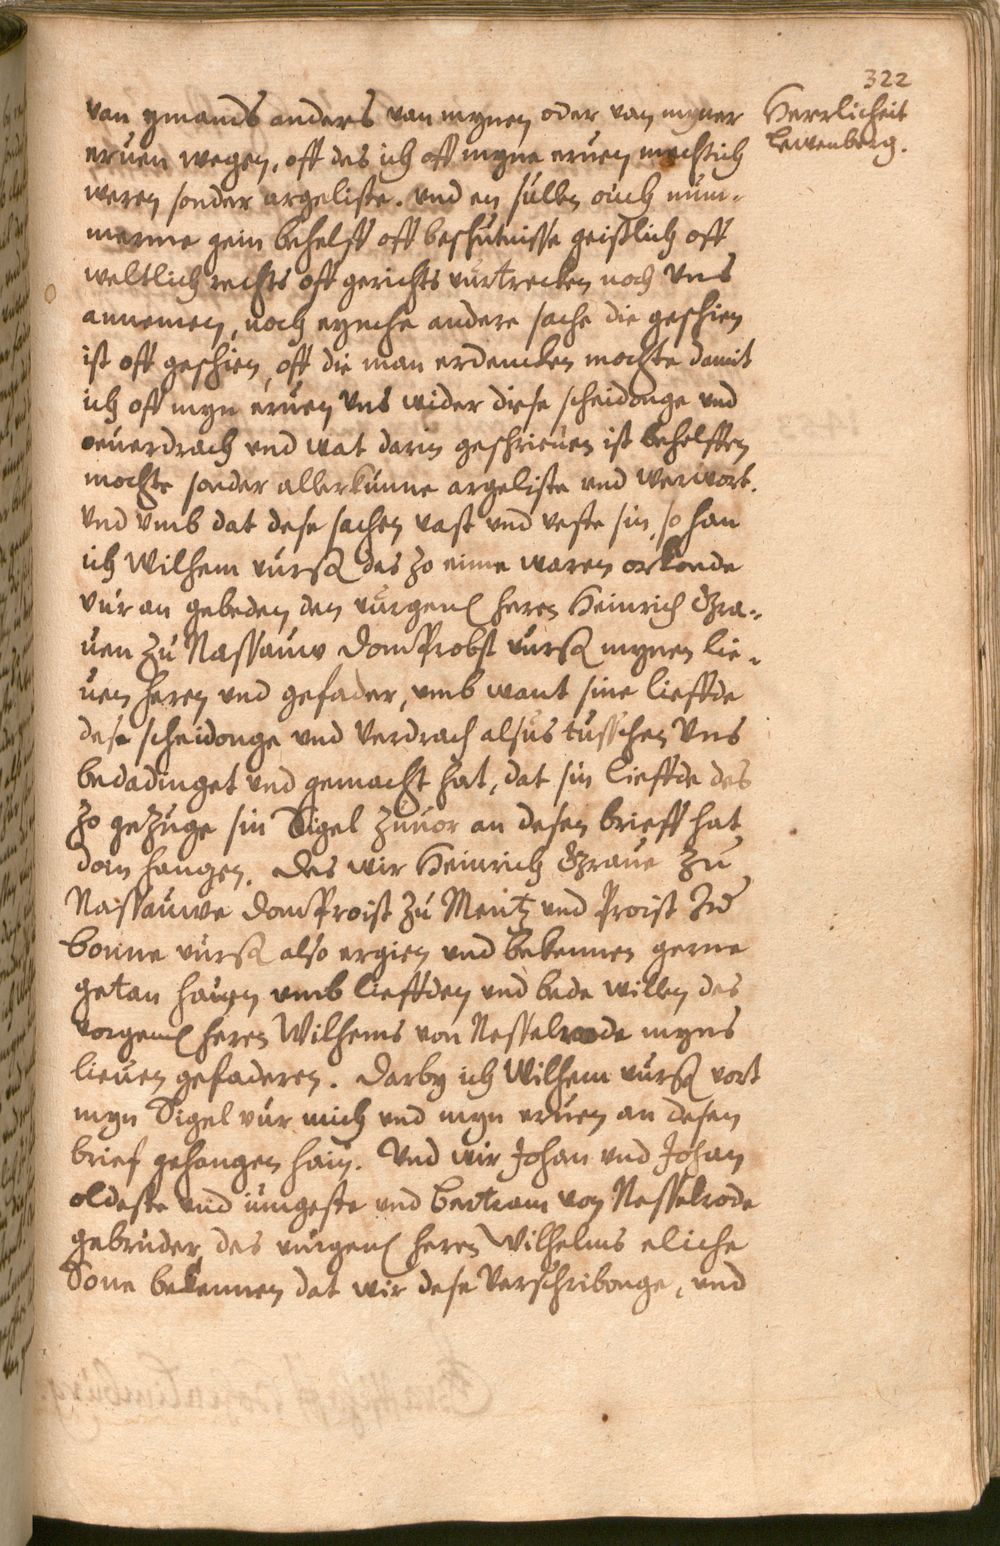 322
Herrlicheit
Lewenberg.
van ymands anders van mynen oder van myner
eruen wegen, off des ich off myne eruen mechtich
weren sonder argeliste. vnd en sullen oůch nům-
merme gein behelff off beschutnisse geistlich off
weltlich rechts off gerichts vůrtrecken noch vns
annemen, noch eynche andere sache die geschien
ist off geschien, off die man erdencken mochte damit
ich off myn eruen vns wider diese scheidonge vnd
oeuerdrach vnd wat darin geschrieuen ist behelffen
mochte sonder allerkůnne argeliste vnd werwort.
Vnd vmb dat dese sachen vast vnd veste sin, so han
ich Wilhem vurß des zo eime waren orkonde
vůr an gebeden den vůrgen͠ heren Heinrich Gra-
uen zů Nassauw domprobst vurß mynen lie-
uen heren vnd gefader, vmb want sine liefde
dese scheidonge vnd verdrach alsůs tůsschen vns
bedadinget vnd gemacht hat, dat sin lieffde des
zo gezůge sin Sigel zuuor an desen brieff hat
don hangen. Des wir Heinrich Graue zů
Nassauwe domproist zů Mentz vnd Proist zo
bonne vůrß also ergien vnd bekennen gerne
getan hauen vmb lieffden vnd bede willen des
vorgen͠ heren Wilhems von Nesselrode myns
lieůen gefaderen. Darby ich Wilhem vurß vort
myn Sigel vůr mich vnd myn eruen an desen
brief gehangen hain. Vnd wir Johan vnd Johan
oldeste vnd iůngeste vnd bertram von Nesselrode
gebrůder des vůrgen͠ heren Wilhelms eliche
Sone bekennen dat wir dese verschribonge, vnd